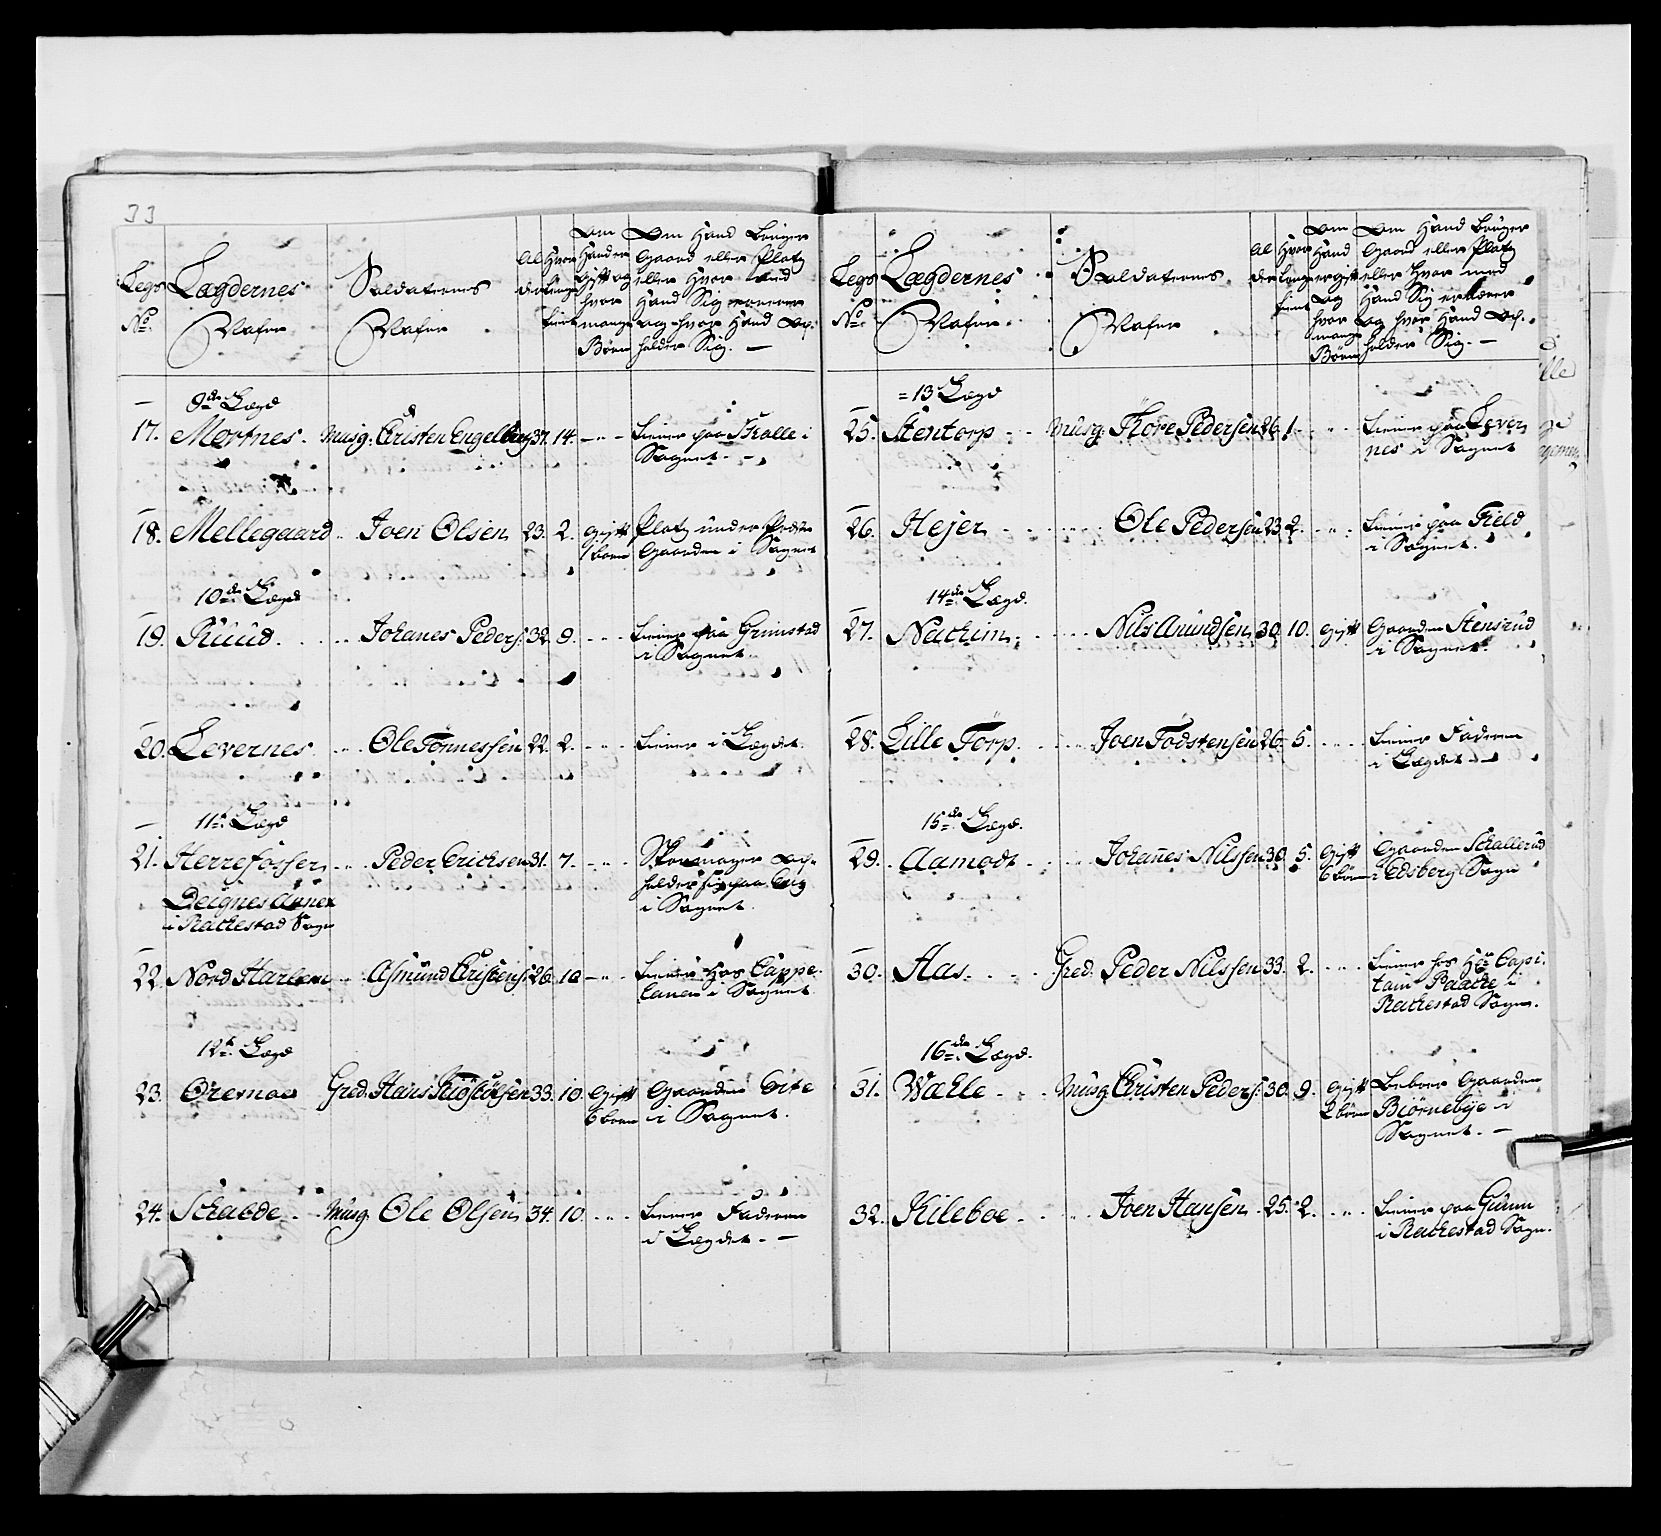 33
Legs No. Lægdernes Nafne
Soldaternes Nafne
Alderen
Hvor Længe tient
Om Hand er gift og hvor mange Børn
Om Hand Bruger Gaard eller Platz eller Hvor med Hand Sig ernærer og hvor Hand opholder Sig. —
9de Lægd
17. Mortnes. Musq: Christen Engelbreg 37. 14. — tiener paa Skolle i
Sognet. —
18. Mellegaard Joen Olsen 23. 2. Gift Platz under Præste
1 born Gaarden i Sognet
10de Lægd
19. Ruud. Johanes Peders: 32. 9. tiener paa Grimstad
i Sognet.
20. Levernes. Ole Tønnessen 22. 2. tiener i Lægdet.
11te Lægd
21. Herrefosser Peder Erichsen 31. 7. Skoemager op-
holder sig paa
i Sognet.
Deignes Annex
i Rachestad Sogn
22. Nord Harlem Asmund Christens: 26. 10 tiener hos Cappe-
lanen i Sognet
12te Lægd
23. Oremoe Gred. Hans 33. 10. Gift Gaarden
6 born i Sognet.
24. Schabde Musq. Ole Olsen 34. 10. tiener Faderen
i Lægdet. —
Legs No. Lægdernes Nafne
Soldaternes Nafne
Alderen
Hvor Længe tient
Om Hand er gift og hvor mange Børn
Om Hand Bruger Gaard eller Platz eller Hvor med Hand Sig ernærer og hvor Hand opholder Sig. —
= 13 Lægd
25. Stentorp Musq: Thore Pedersen 26. 1. tiener paa Lever
nes i Sognet
26. Hejer Ole Pedersen 23. 2. tiener paa Field
i Sognet.
14de Lægd.
27. Nachim Nils Amundsen 30. 10. Gift Gaarden Stensrud
i Sognet.
28. Lille Torp. Joen Todstensen 26. 5. tiener Faderen
i Lægdet —
15de Lægd.
29. Aamodt Johannes Nilssen 30. 5. Gift Gaarden Schallerud
6 børn i Edsberg Sogn
30. Has. Gred. Peder Nilssen 33. 2. tiener hos Hr Capi-
tain Paache i
Rachestad Sogn.
16de Lægd.
31. Wæhle Musq Christen Peders: 30. 9. Gift Beboer Gaarden
2 børn Biørnebye i
Sognet. —
32. Kileboe Joen Hansen 25. 2. tiener paa
i Rachestad Sogn.